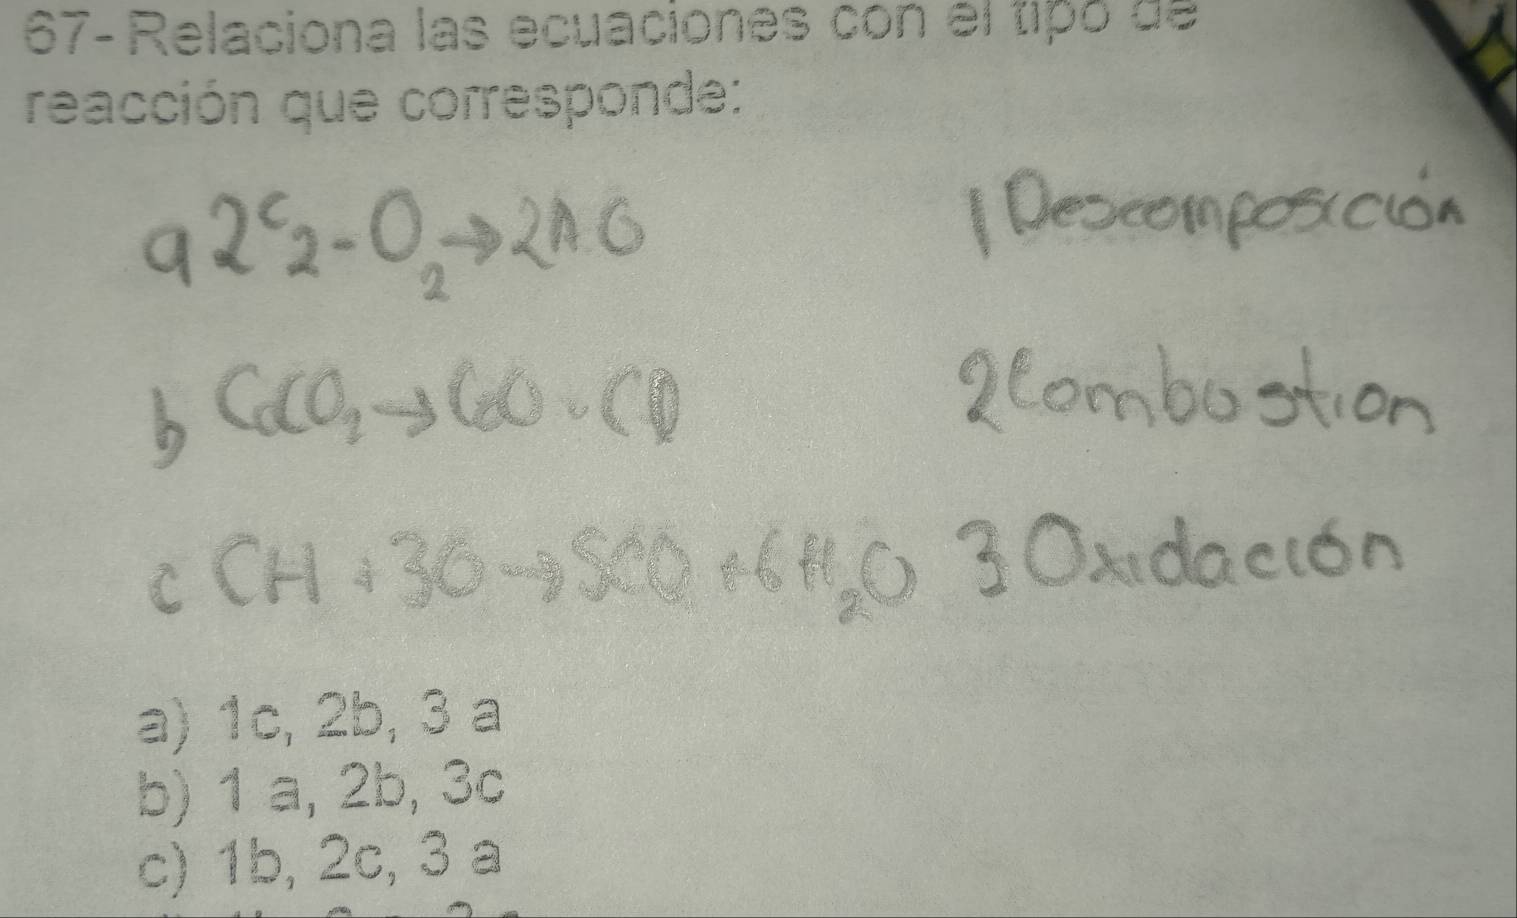 67- Relaciona las ecuaciones con el tipo de
reacción que corresponde:
a 2C2-O2→2AO
1 Descomposicción
b CaCO2→CaO
2 Combustion
c CH+3O→5CO+6H2O
3 Oxidación
a) 1c, 2b, 3 a
b) 1 a, 2b, 3c
c) 1b, 2c, 3 a